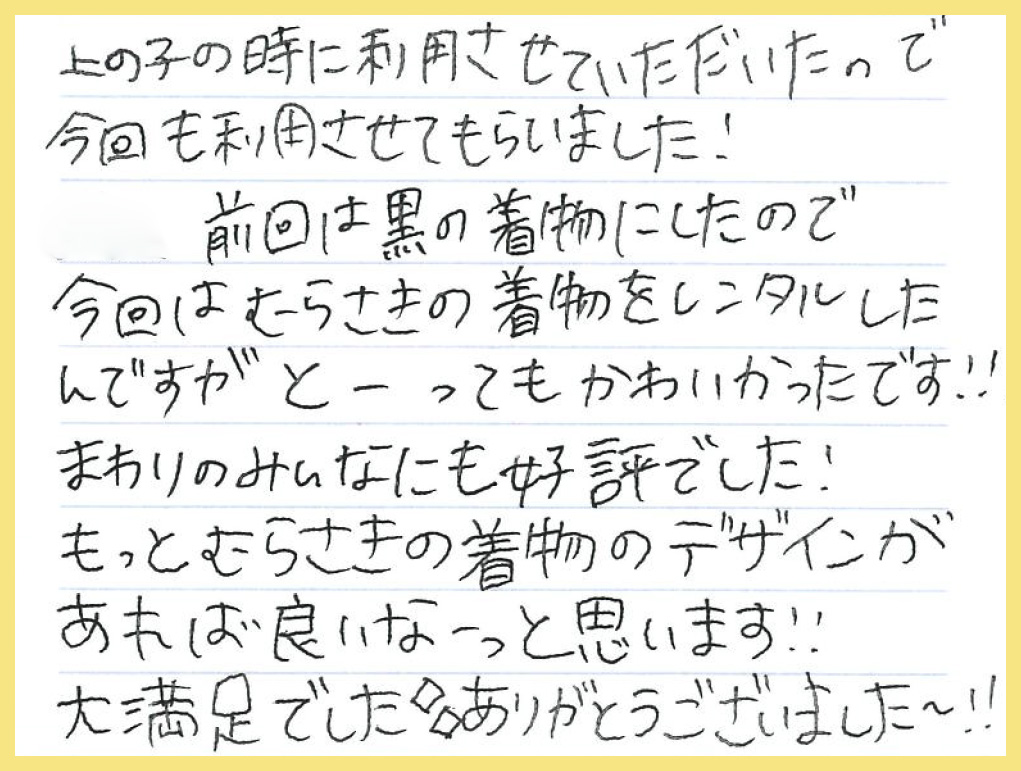 上の子の時に利用させていただいたので
今回も利用させてもらいました!
前回は黒の着物にしたので
今回はむらさきの着物をレンタルした
んですがとーってもかわいかったです!!
まわりのみんなにも好評でした!
もっとむらさきの着物のデザインが
あれば良いなーっと思います!!
大満足でしたありがとうございました~!!